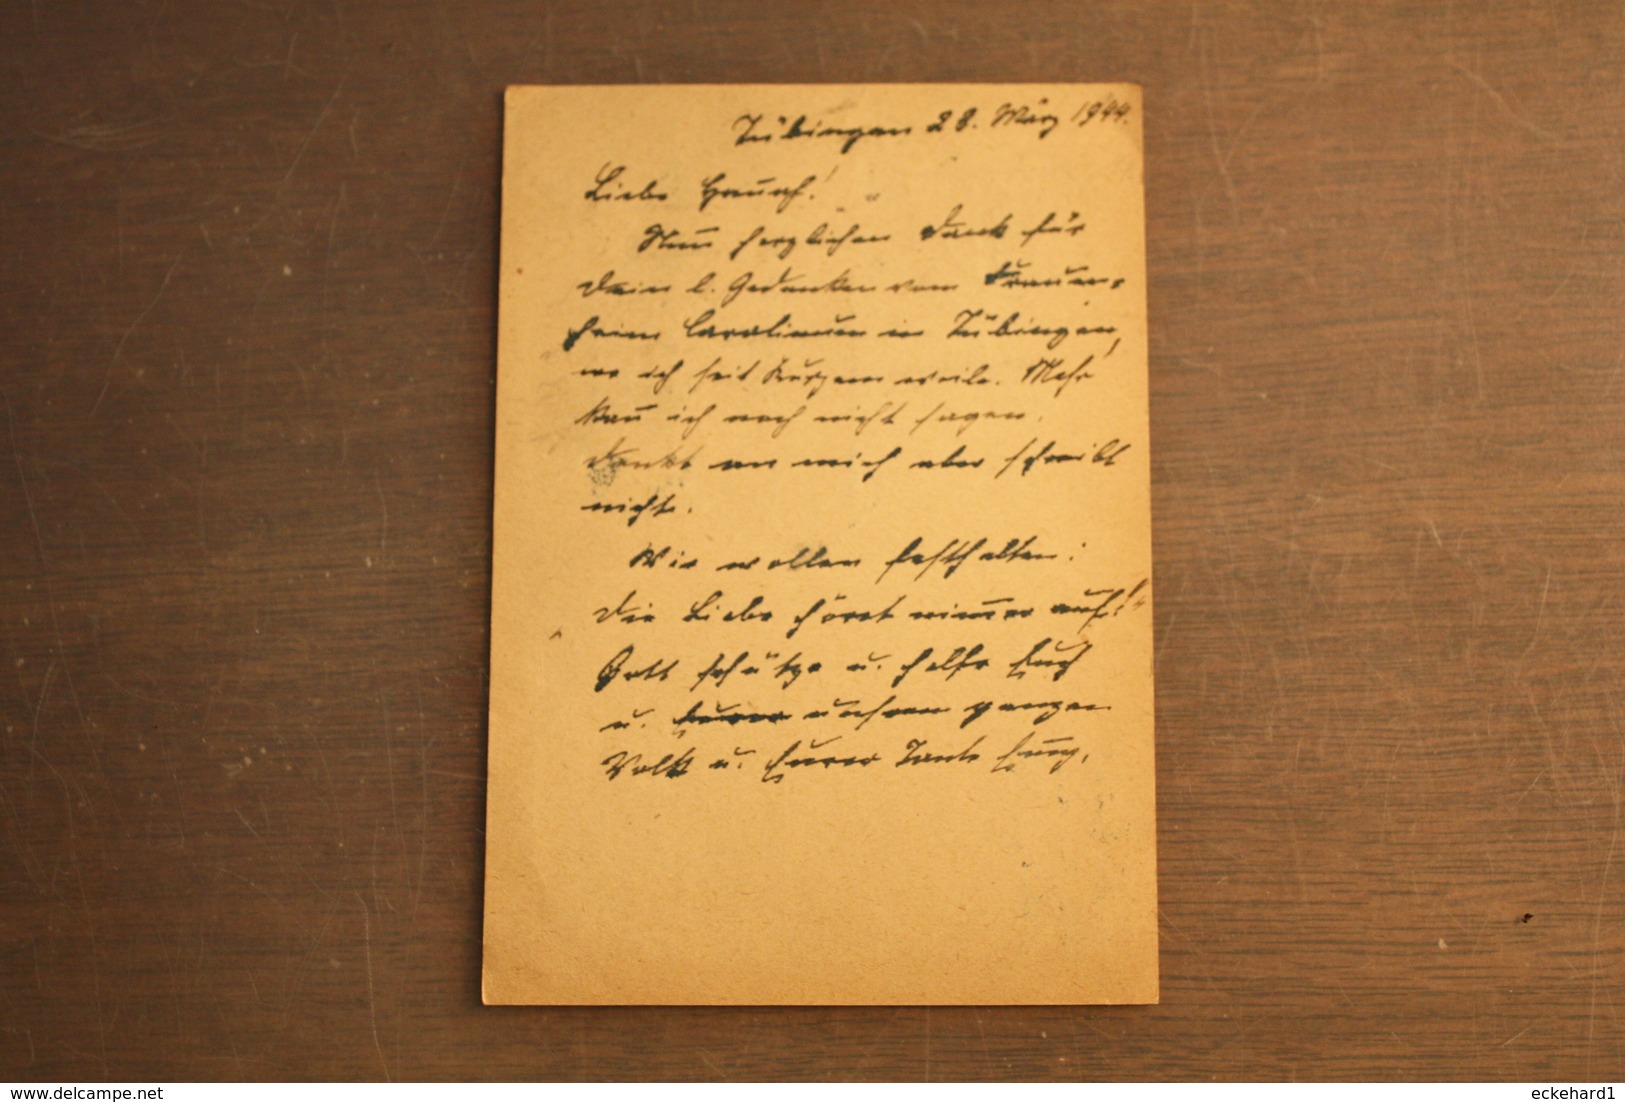 Tübingen 28. März 1944.
Liebe Hannah!
Nun herzlichen Dank für
Dein l. Gedenken vom Frauen-
heim in Tübingen,
wo ich seit Kurzem weile. Mehr
kann ich noch nicht sagen.
Denkt an mich aber schreibt
nicht.
Wir wollen festhalten:
Die Liebe höret nimmer auf!"
Gott schütze u. helfe Euch
u. Eurer unserem ganzen
Volk u. Eurer Tante
delcampe.net
eckehard1